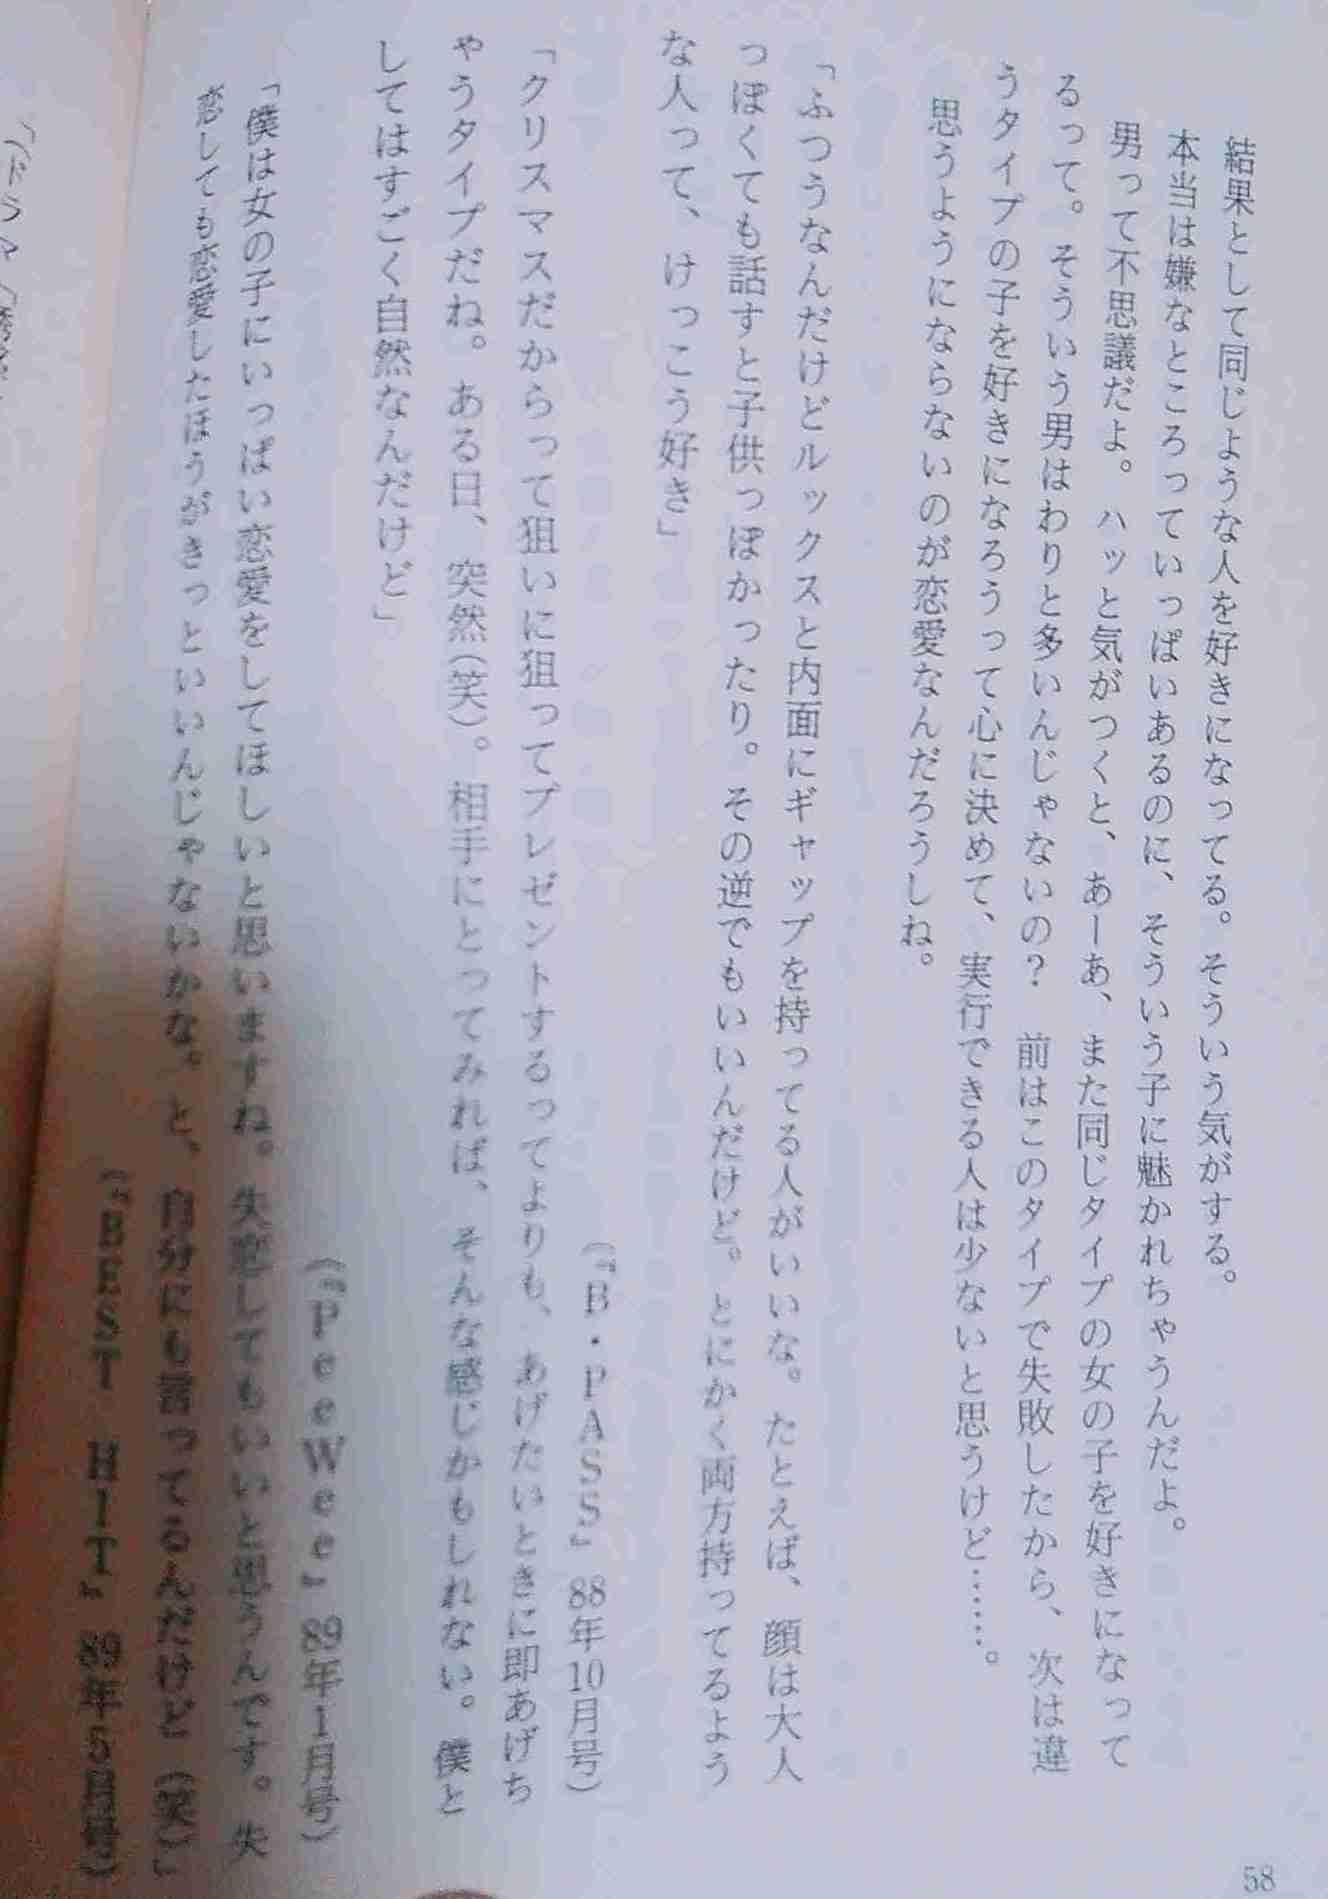 結果として同じような人を好きになってる。そういう気がする。
本当は嫌なところっていっぱいあるのに、そういう子に魅かれちゃうんだよ。
男って不思議だよ。ハッと気がつくと、あーあ、また同じタイプの女の子を好きになって
るって。そういう男はわりと多いんじゃないの？　前はこのタイプで失敗したから、次は違
うタイプの子を好きになろうって心に決めて、実行できる人は少ないと思うけど……。
思うようにならないのが恋愛なんだろうしね。
「ふつうなんだけどルックスと内面にギャップを持ってる人がいいな。たとえば、顔は大人
っぽくても話すと子供っぽかったり。その逆でもいいんだけど。とにかく両方持ってるよう
な人って、けっこう好き」
（『B・PASS』88年10月号）
「クリスマスだからって狙いに狙ってプレゼントするってよりも、あげたいときに即あげち
ゃうタイプだね。ある日、突然（笑）。相手にとってみれば、そんな感じかもしれない。僕と
してはすごく自然なんだけど」
（『PeeWee』89年1月号）
「僕は女の子にいっぱい恋愛をしてほしいと思いますね。失恋してもいいと思うんです。失
恋しても恋愛したほうがきっといいんじゃないかな。と、自分にも言ってるんだけど（笑）」
（『BEST HIT』89年5月号）
「（ドラマ
58